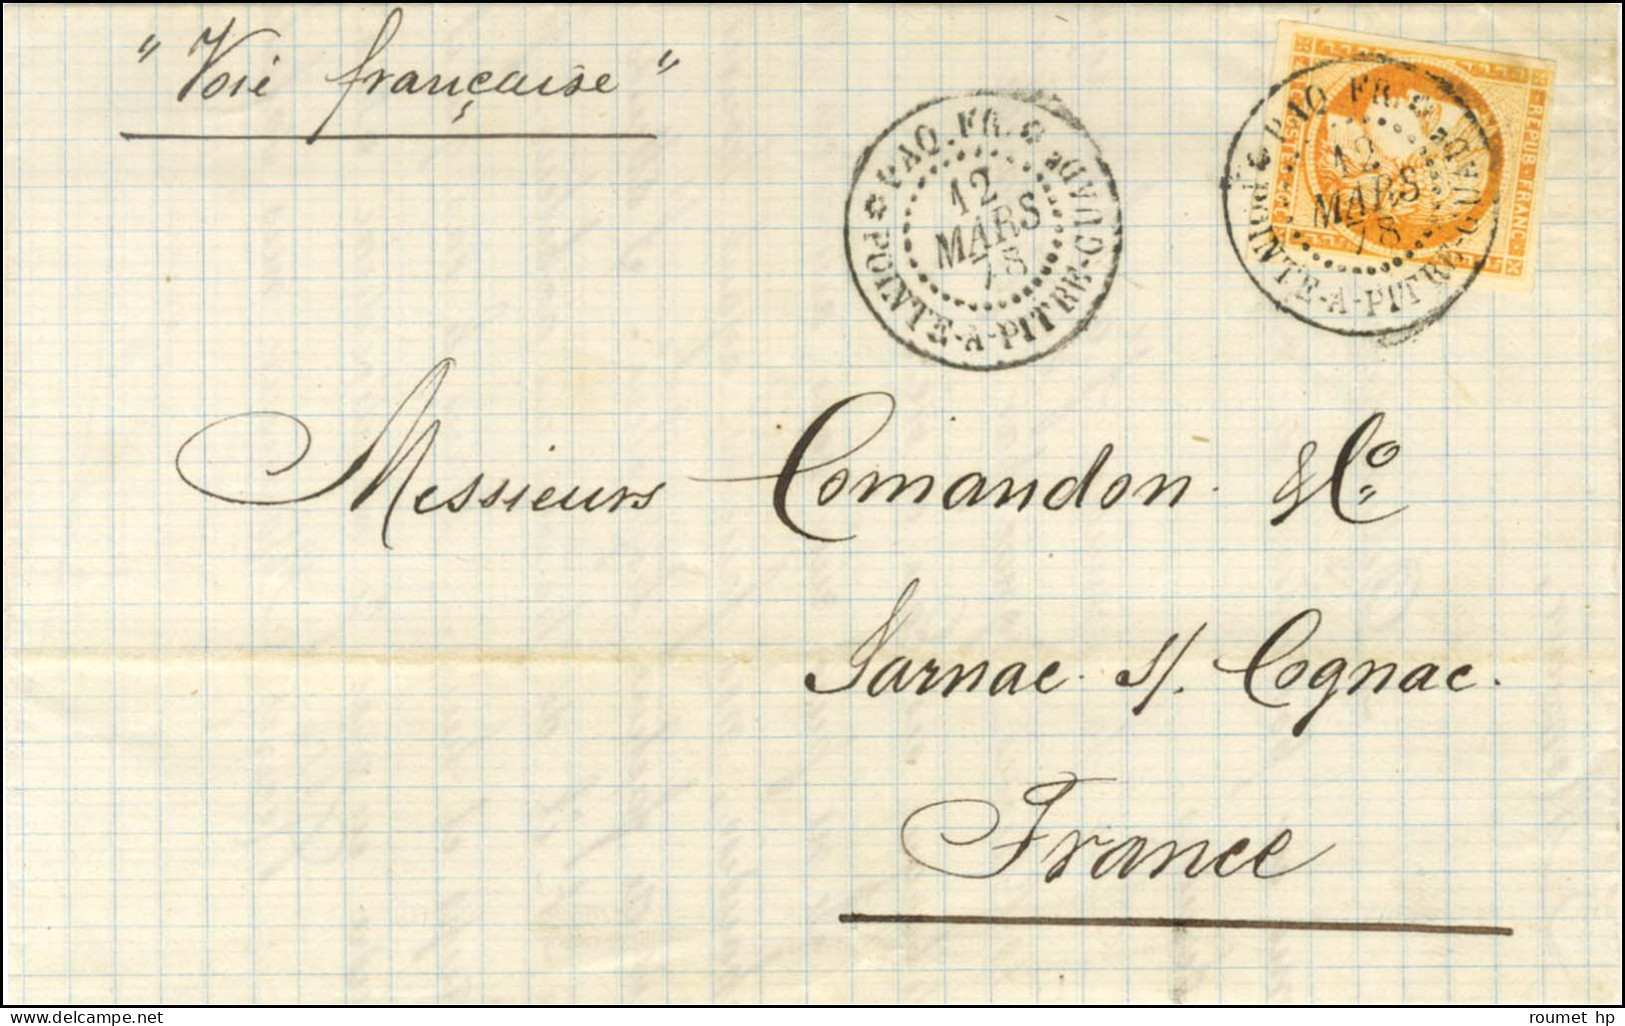 "Voie française"
✿ PAQ. FR. ✿ POINTE-A-PITRE-GUADe
12
MARS
78
REPUB. FRANC.
POSTES
✿ PAQ. FR. ✿ POINTE-A-PITRE-GUADe
12
MARS
78
Messieurs Comandon & Co
Jarnac s/. Cognac.
France
roumet hp